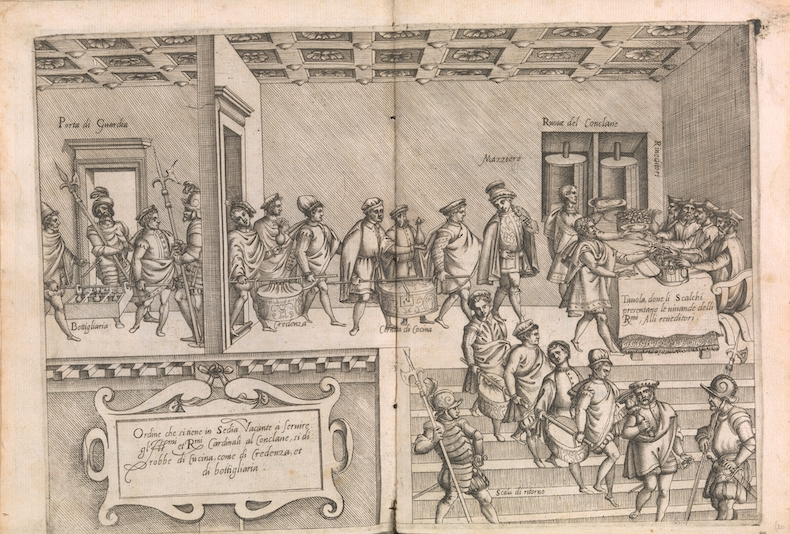 Porta di Guardia
Ruotae del Conclave
Mazziero
Bottigliaria
Credenza
Cornuta di Cocina
Tavola, dove li Scalchi
presentano le vivande delli
R.mi Alli reveditori.
Ordine che si tiene in Sedia Vacante a servire
gl'Ill.mi et R.mi Cardinali al Conclave, sì di
robbe di Cucina, come di Credenza, et
di bottigliaria.
Scala di ritorno